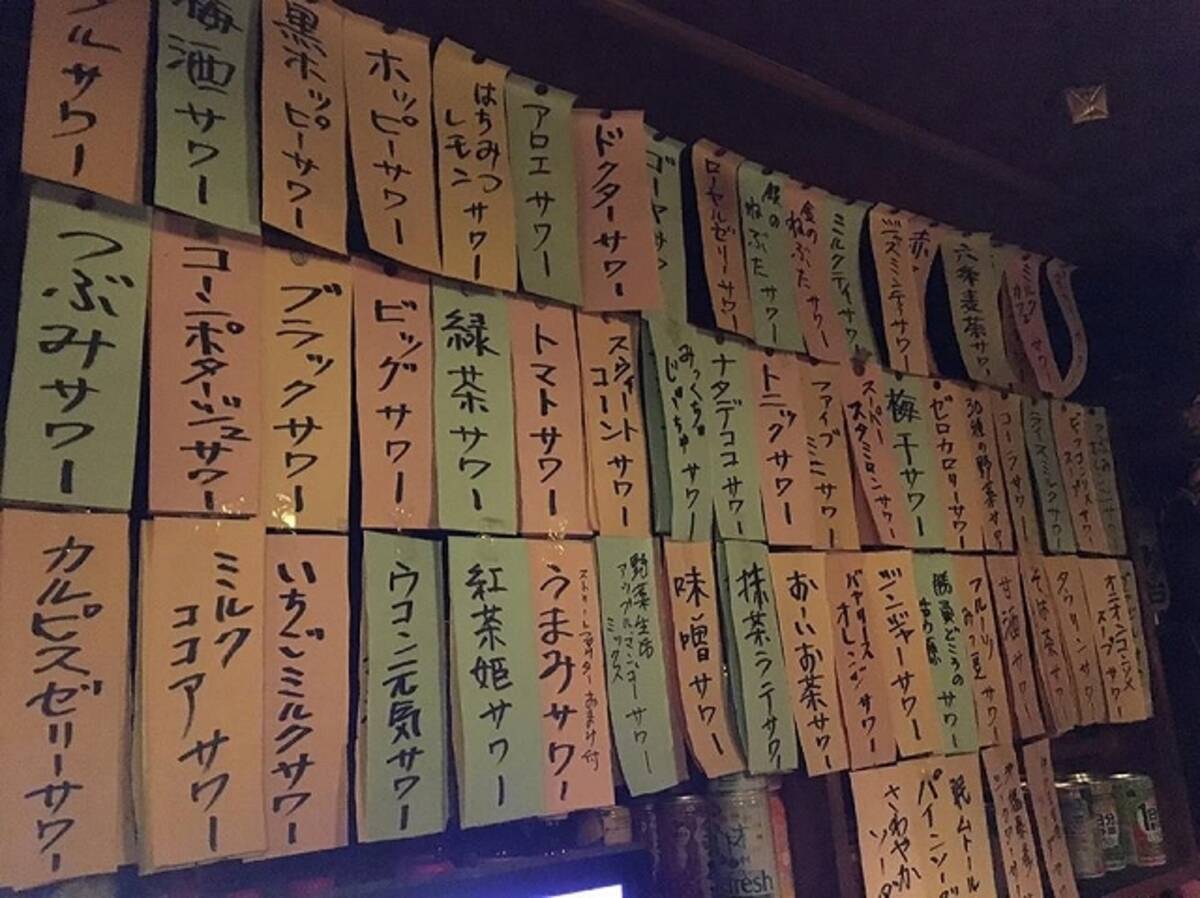 ルサワー
梅酒サワー
黒ホッピーサワー
ホッピーサワー
はちみつ
レモン
サワー
アロエサワー
ドクターサワー
ゴーヤ
ローヤルゼリーサワー
銀の
ねぶた
サワー
金の
ねぶた
サワー
ミルクティサワー
ジャスミンティサワー
六条麦茶サワー
つぶみサワー
コーンポタージュサワー
ブラックサワー
ビッグサワー
緑茶サワー
トマトサワー
スウィート
コーン
サワー
みっくちゅ
じゅーちゅ
サワー
ナタデココサワー
トニックサワー
ファイブミニサワー
スーパー
スタミナンサワー
梅干サワー
ゼロカロリーサワー
30種の野菜
コーラサワー
ライスミルクサワー
カルピスゼリーサワー
ミルク
ココア
サワー
いちごミルクサワー
ウコン元気サワー
紅茶姫サワー
うまみサワー
野菜生活
アップルマンゴー
ミックス
サワー
味噌サワー
抹茶ラテサワー
おーいお茶サワー
バヤリース
オレンジ
サワー
ジンジャーサワー
フルーツ
みつ豆
サワー
甘酒サワー
そば茶サワー
オニオンコンソメ
スープ
サワー
パインソー
さわやか
ソーダ
fresh